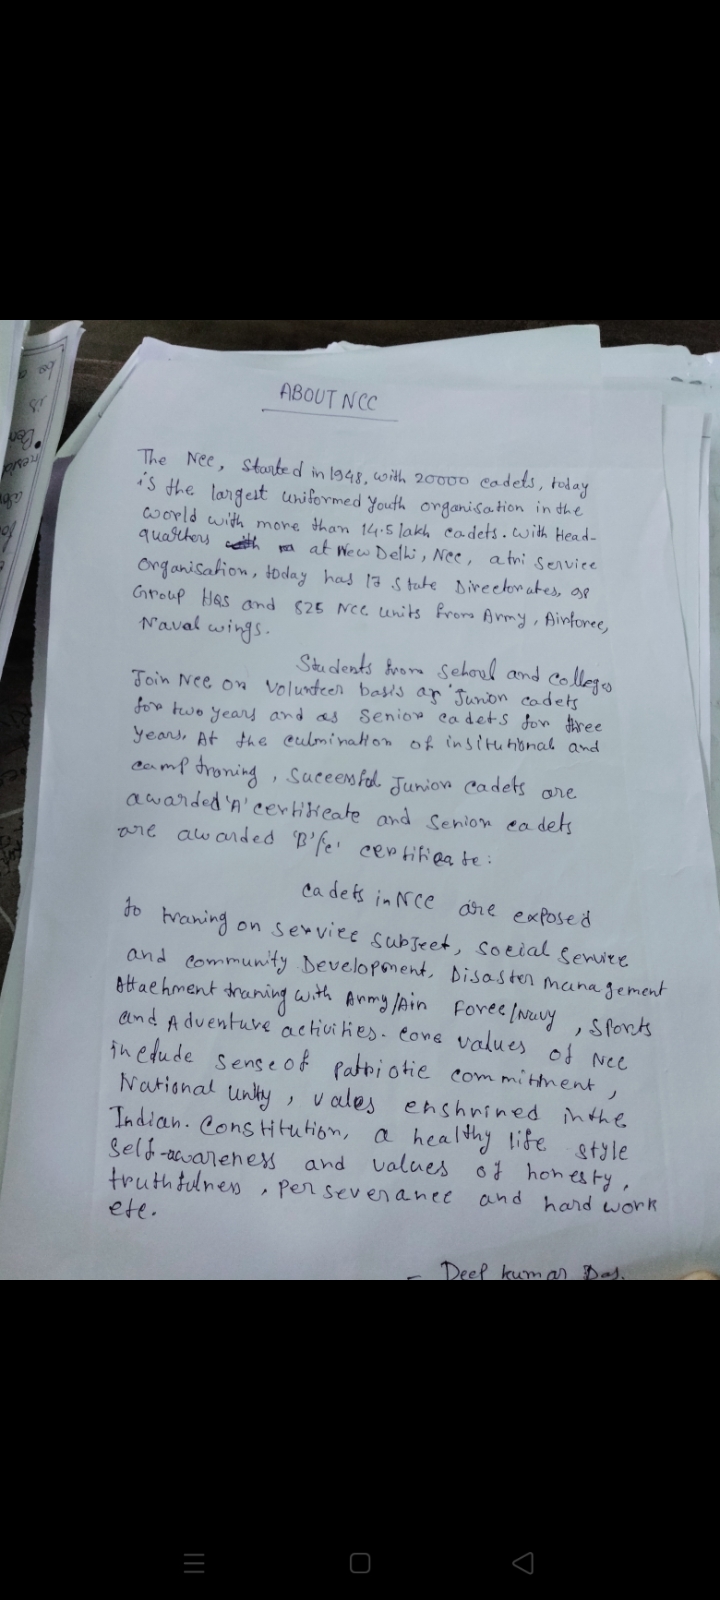 ABOUT NCC
The Ncc, Started in 1948, with 20000 cadets, today
is the largest uniformed Youth organisation in the
world with more than 14.5 lakh cadets. with Head-
quarters at New Delhi, Ncc, a tri service
organisation, today has 17 State Directorates, 98
Group HQs and 825 Ncc units from Army, Airforce,
Naval wings.
Students from School and Colleges
Join Ncc on volunteer basis as Junior cadets
for two years and as Senior cadets for three
years. At the culmination of insitutional and
camp troning, Successful Junior cadets are
awarded 'A' certificate and Senior cadets
are awarded 'B'/'c' certificate:
Cadets in NCC are exposed
to traning on service subject, social service
and community Development, Disaster management
Attachment traning with Army/Air Force/Navy, Sports
and Adventure activities. Core values of Ncc
include sense of patriotic commitment,
National unity, vales enshrined in the
Indian. Constitution, a healthy life style
Self-awareness and values of honesty,
truthfulness, perseverance and hard work
etc.
- Deep kumar Das.